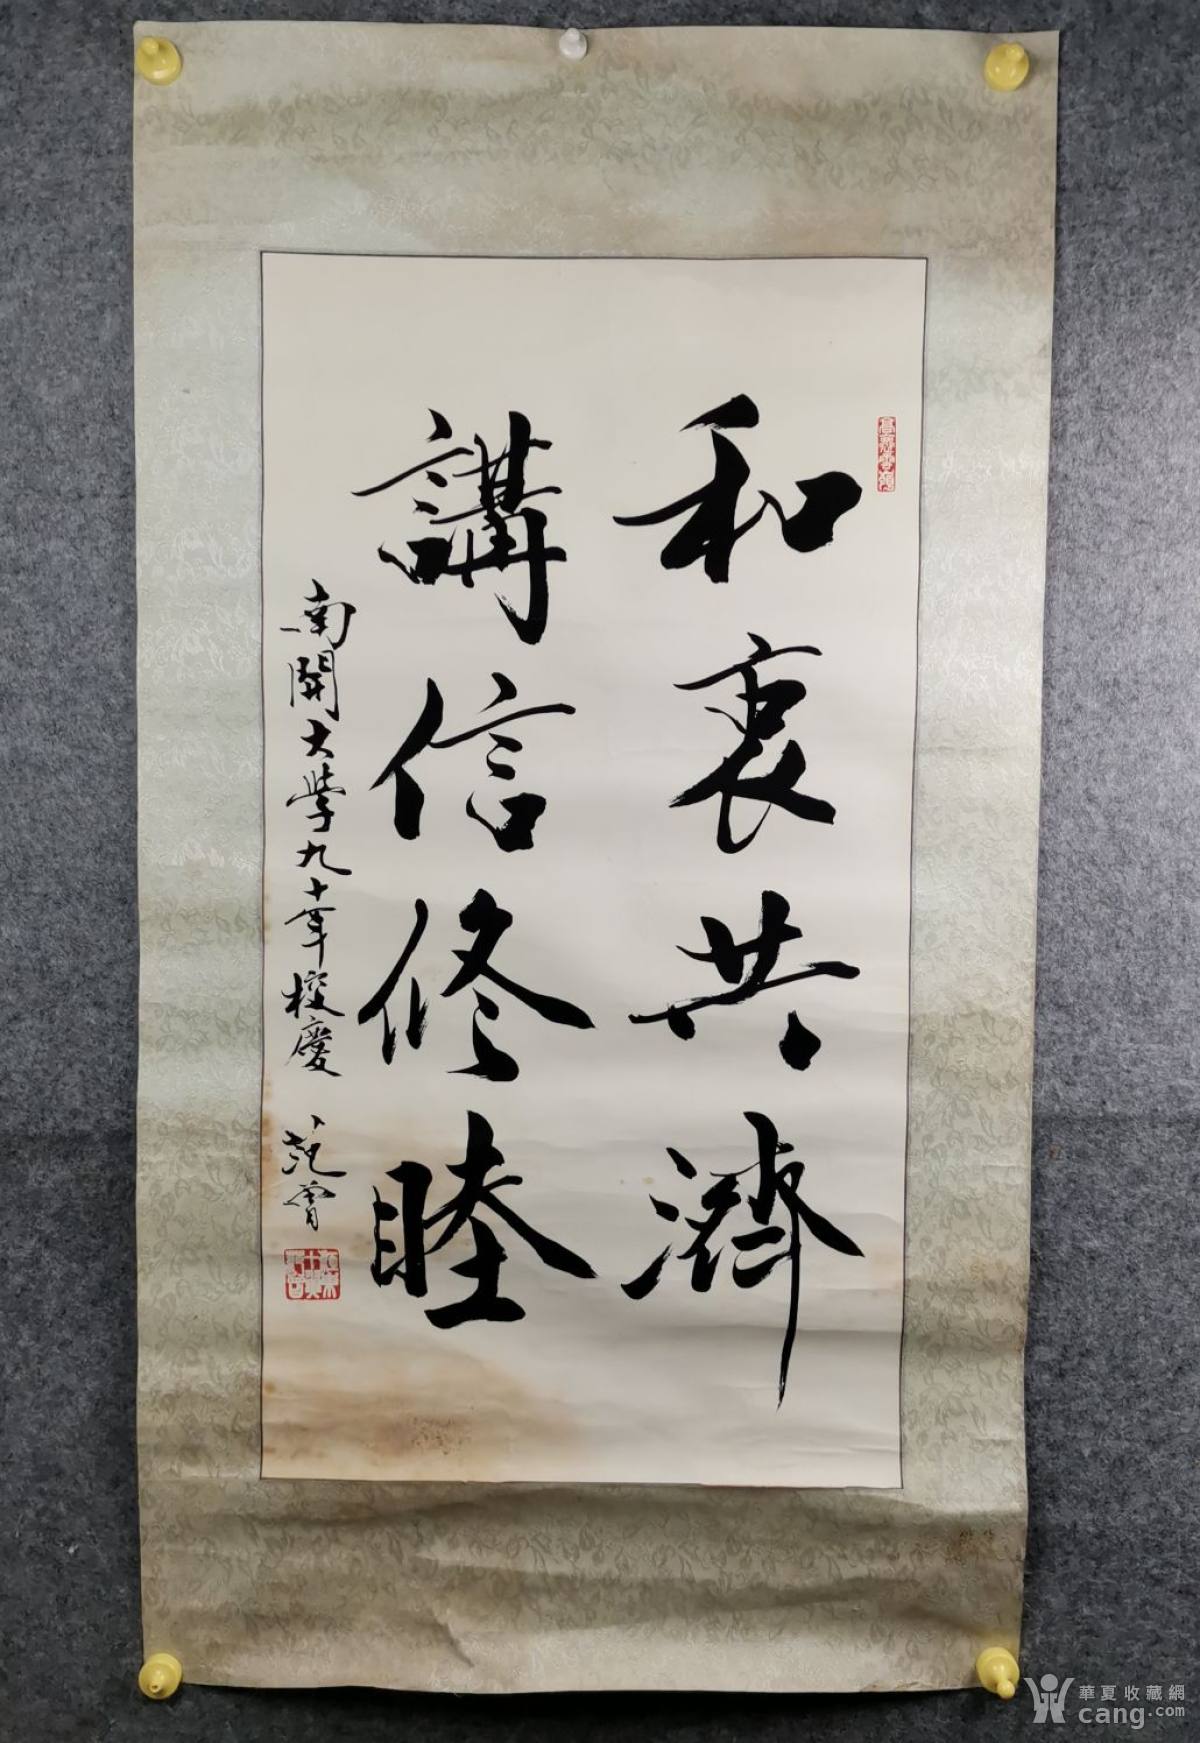 和衷共濟
講信修睦
南開大學九十年校慶 范曾
華夏收藏網
cang.com